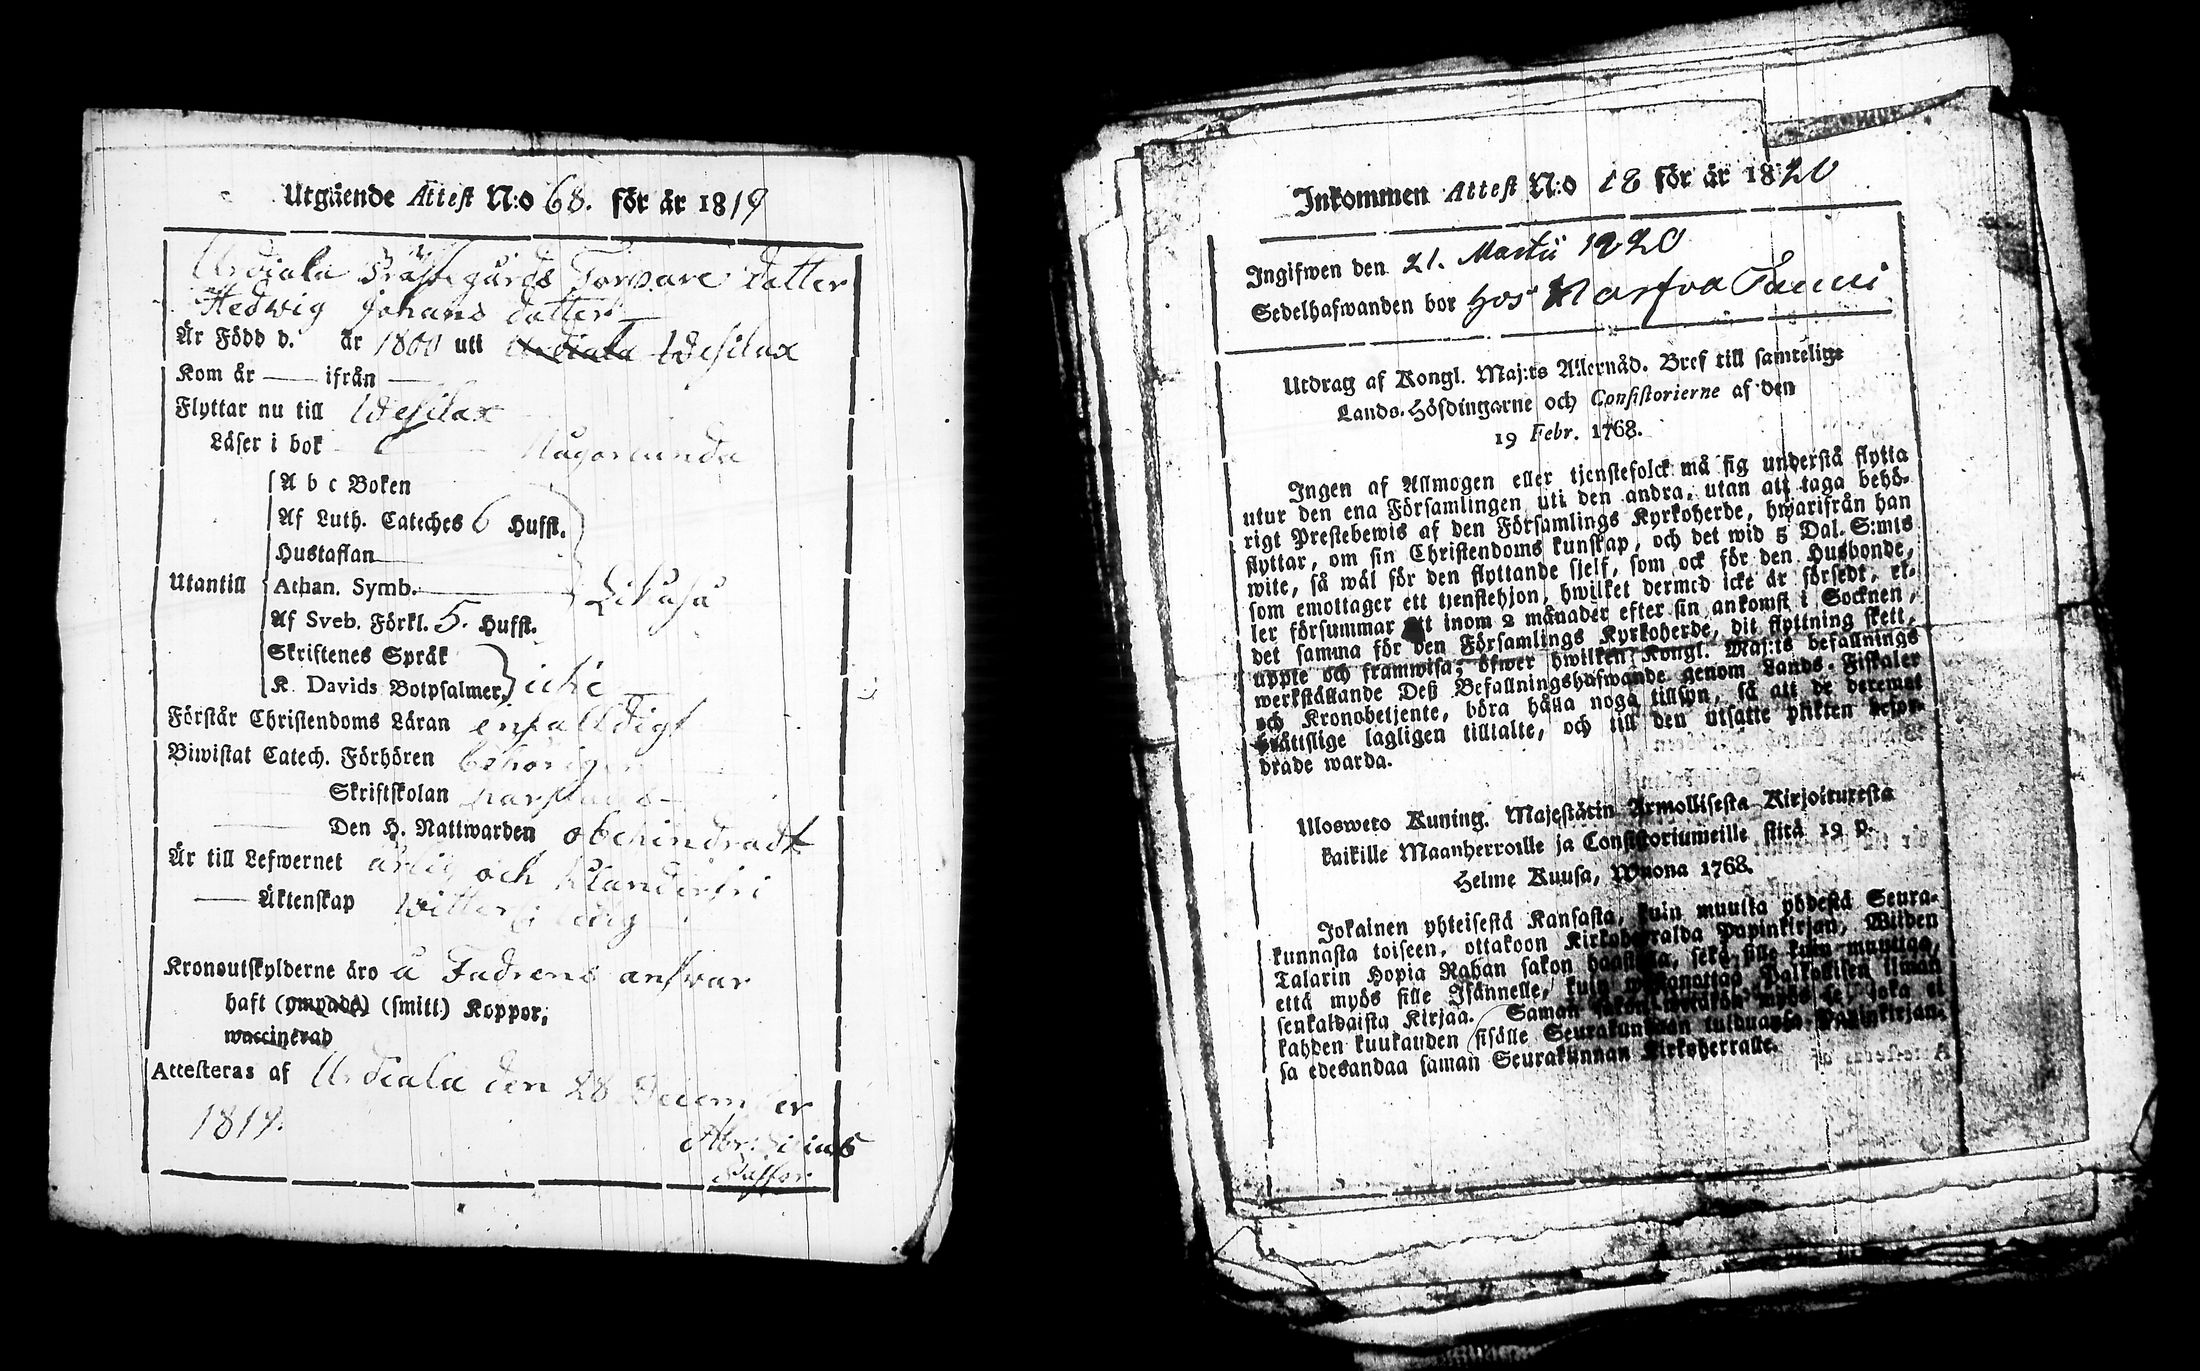 Utgående Attest N:o 68. för år 1819
Urdiala Prästegårds Torpare dotter
Hedwig Johans dotter
Är Född d. år 1800 uti Urdiala Wesilax
Kom år — ifrån —
Flyttar nu till Wesilax
Läser i bok någorlunda
A b c Boken
Af Luth. Cateches 6 Hufst.
Hustaflan
Utantill Athan. Symb. Likaså
Af Sveb. Förkl. 5. Hufst.
Skriftenes Språk
K. Davids Botpsalmer, icke
Förstår Christendoms Läran enfaldigt
Biwistat Catech. Förhören behörigen
Skriftskolan
Den H. Nattwarden obehindradt
Är till Lefwernet ärlig och klanderfri
Äktenskap ledig
Kronoutskylderne äro å Fadrens answar
haft (ympade) (smitt.) Koppor;
waccinerad
Attesteras af Urdiala den 28 December
1819.
Inkommen Attest N:o 18 för år 1820
Ingifwen den 21. Martii 1820
Sedelhafwanden bor hos
Utdrag af Kongl. Maj:ts Allernåd. Bref till samtelige
Lands-Höfdingarne och Consistorierne af den
19 Febr. 1768.
Ingen af Allmogen eller tjenstefolck må sig understå flytta
utur den ena Församlingen uti den andra, utan att taga behö-
rigt Prestebewis af den Församlings Kyrkoherde, hwarifrån han
flyttar, om sin Christendoms kunskap, och det wid 5 Dal. S:mts
wite, så wäl för den flyttande sjelf, som ock för den Husbonde,
som emottager ett tjenstehjon, hwilket dermed icke är försedt, el-
ler försummar att inom 2 månader efter sin ankomst i Socknen,
det samma för den Församlings Kyrkoherde, dit flyttning skett,
uppte och framwisa; öfwer hwilken Kongl. Maj:ts befallnings
werkställande Deß Befallningshafwande genom Lands-Fiskaler
och Kronobetjente, böra hålla noga tillsyn, så att de deremot
bråttslige lagligen tilltalte, och till den utsatte plikten befor-
drade warda.
Ulosweto Kuning. Majestätin Armollisesta Kirjoituxesta
kaikille Maanherroille ja Consistoriumeille siitä 19 p.
Helme Kuusa, Wuona 1768.
Jokainen yhteisestä Kansasta, kuin muutta yhdestä Seura-
kunnasta toiseen, ottakoon Kirkoherralda Papinkirjan, Wiiden
Talarin Hopia Rahan sakon haastolla, sekä sille kuin muuttaa,
että myös sille Isännelle, kuin Palkollisen ilman
senkaldaista Kirjaa. Saman sakon myös se, joka ei
kahden kuukauden sisälle Seurakundaan tulduansa, Papinkirjan-
sa edesandaa saman Seurakunnan Kirkoherralle.